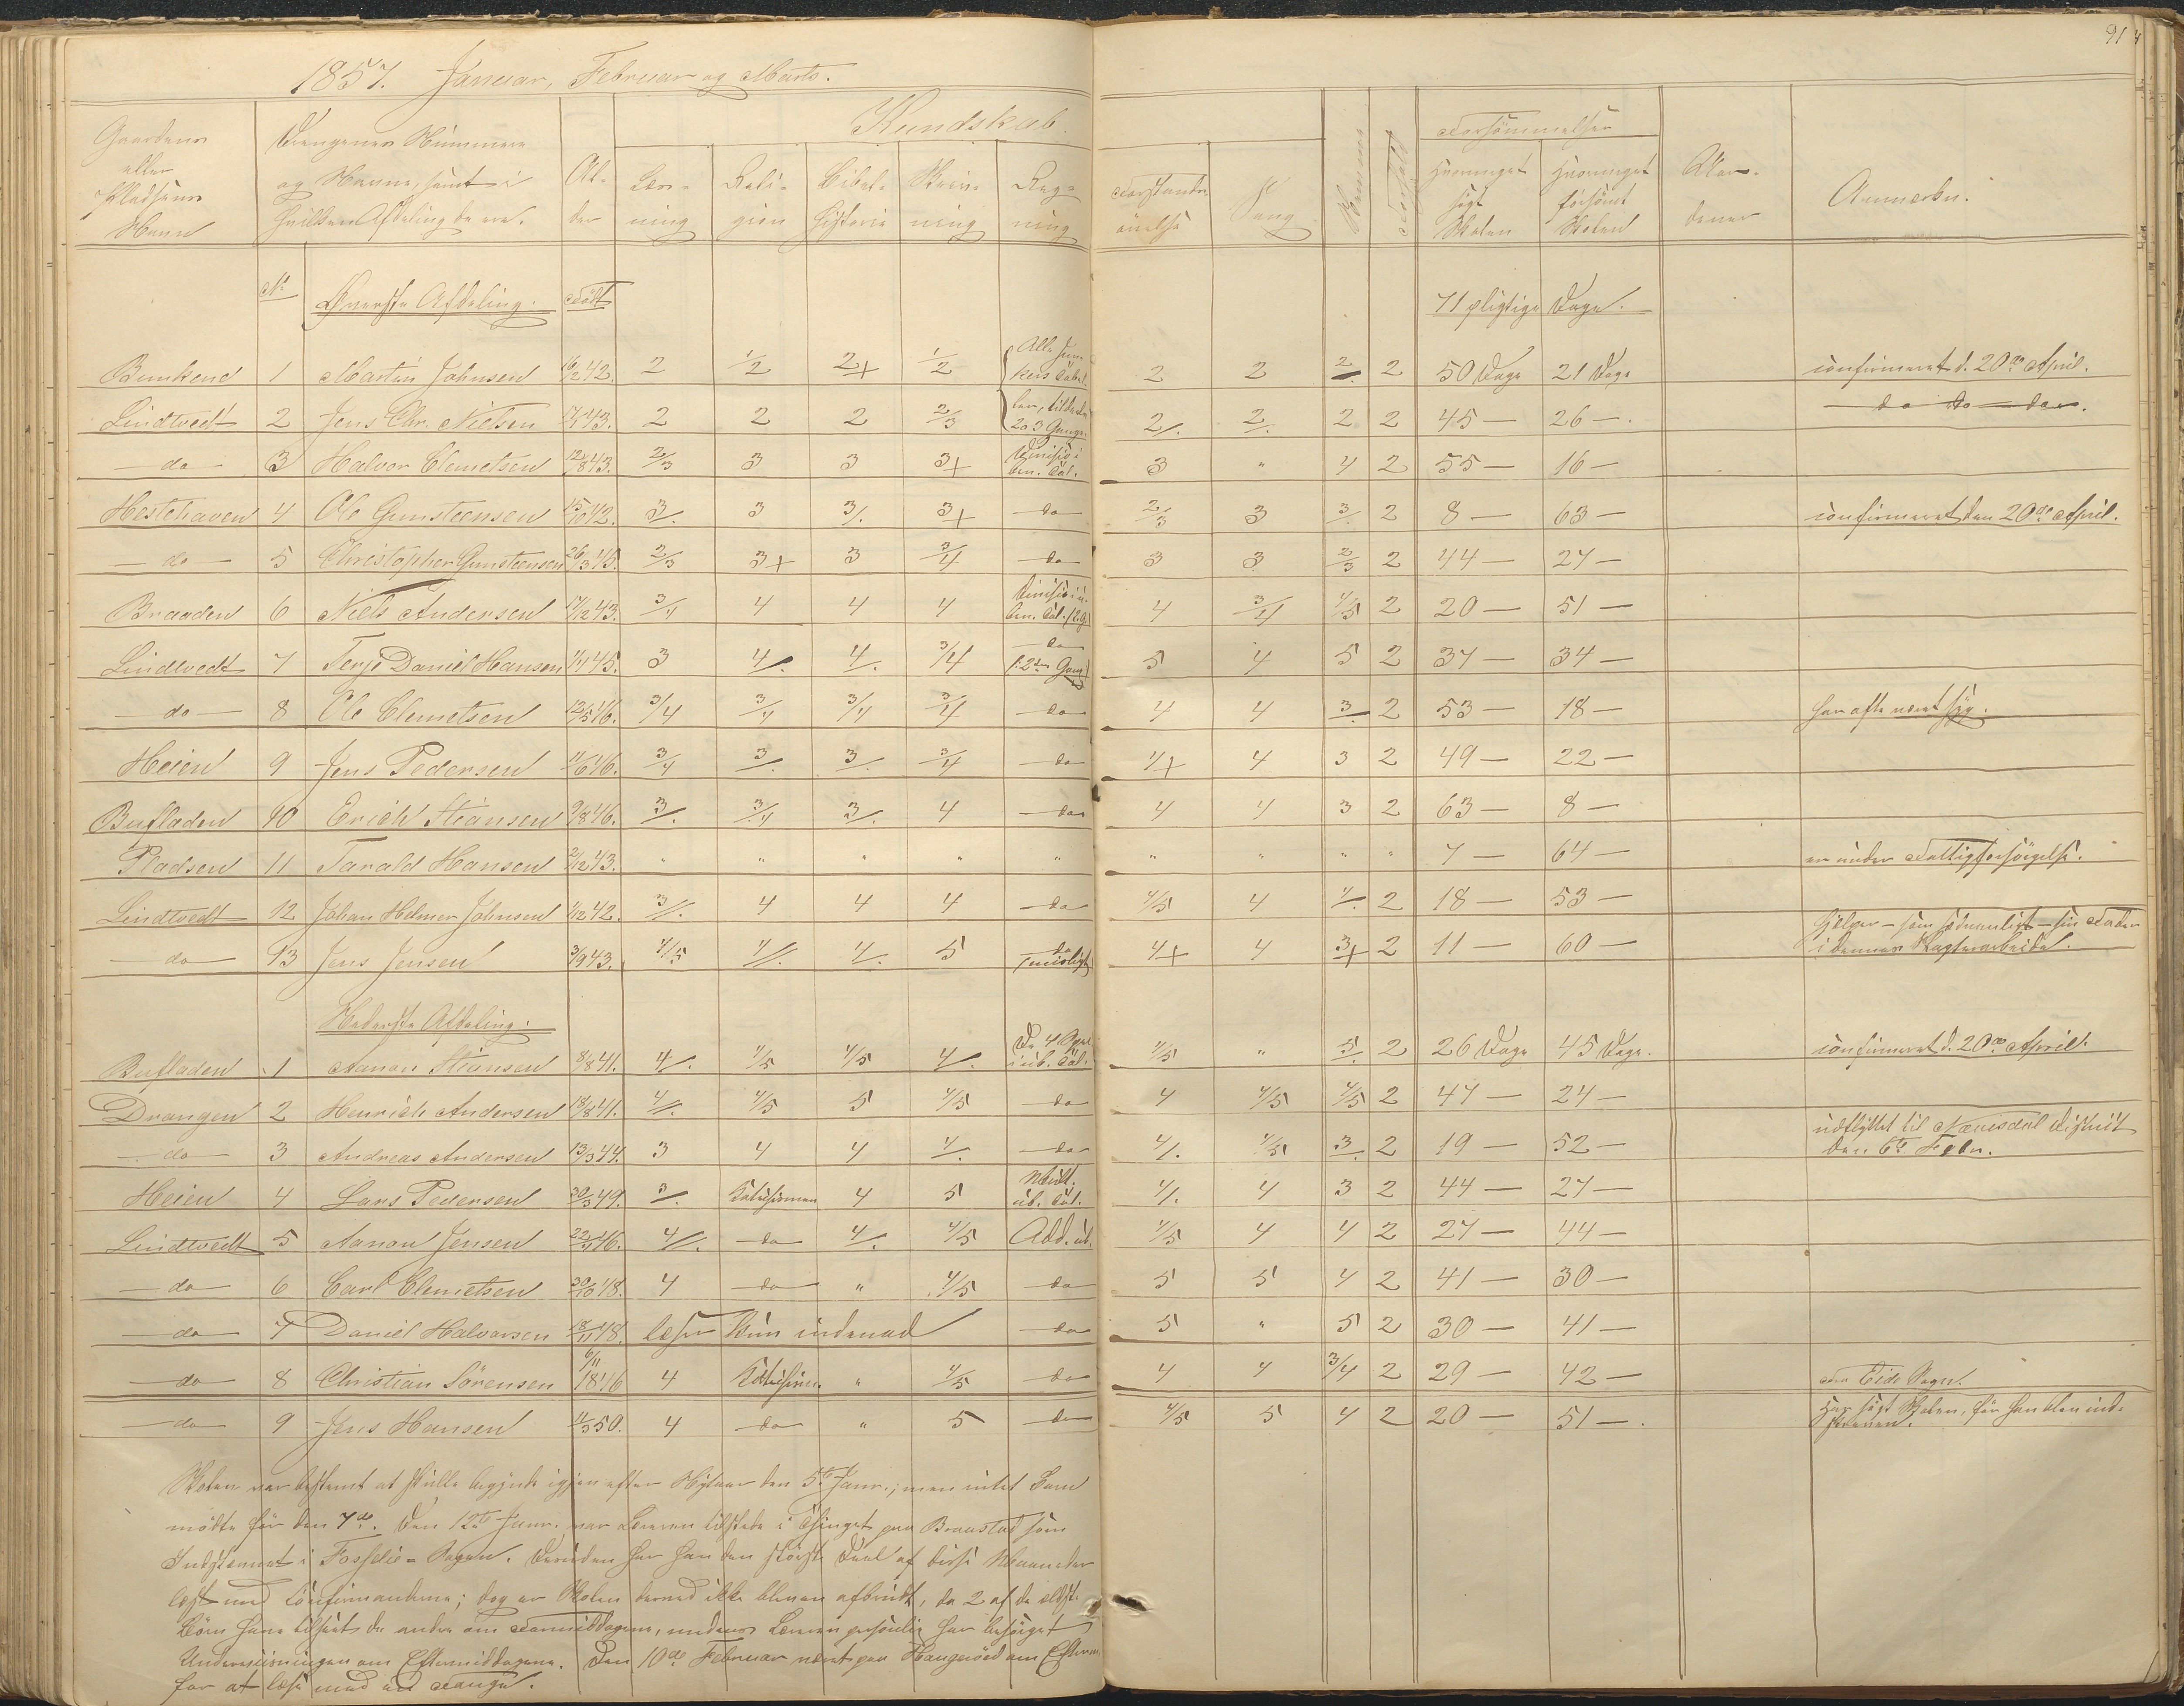 914
1857. Januar, Februar og Marts.
Gaardens eller Pladsens Navn | Drengenes Nummere og Navne, samt i hvilken Afdeling de ere. | Al- der | Kundskab. Læs- ning | Reli- gion | Bibel- historie | Skriv- ning | Reg- ning | Forstands- øvelse | Sang | | Forhold | Forsømmelser hvormeget søgt Skolen | hvormeget forsømt Skolen | | Anmærkn.
No | Øverste Afdeling. | Født | 71 pligtige Dage.
Bunkend | 1 | Martin Johnsen | 16/2 42. | 2 | 1/2 | 2+ | 1/2 | 2 | 2 | 2/. | 2 | 50 Dage | 21 Dage | confirmeret d. 20de April.
Lindtvedt | 2 | Jens Chr. Nielsen | 17/1 43. | 2 | 2 | 2 | 2/3 | 2 o 3 Gange. | 2/. | 2/. | 2 | 2 | 45 — | 26 —. | do do do.
do | 3 | Halvor Clemetsen | 12/8 43. | 2/3 | 3 | 3 | 3+ | Division i ben. Tal. | 3 | " | 4 | 2 | 55 — | 16 —
Hestehaven | 4 | Ole Gunsteensen | 15/10 42. | 3/. | 3 | 3/. | 3+ | do | 2/3 | 3 | 3/. | 2 | 8 — | 63 — | confirmeret den 20de April.
do | 5 | Christopher Gunsteensen | 26/3 45. | 2/3 | 3+ | 3 | 3/4 | do | 3 | 3 | 2/3 | 2 | 44 — | 27 —
Braaden | 6 | Niels Andersen | 17/12 43. | 3/4 | 4 | 4 | 4 | Division i ben. Tal. (2 G.) | 4 | 3/4 | 4/5 | 2 | 20 — | 51 —
Lindtvedt | 7 | Terje Daniel Hansen | 1/1 45. | 3 | 4/. | 4/. | 3/4 | do (2den Gang) | 5 | 4 | 5 | 2 | 37 — | 34 —
do | 8 | Ole Clemetsen | 12/5 46. | 3/4 | 3/4 | 3/4 | 3/4 | do | 4 | 4 | 3/. | 2 | 53 — | 18 — | har ofte været syg.
Heien | 9 | Jens Pedersen | 11/6 46. | 3/4 | 3/. | 3/. | 3/4 | do | 4+ | 4 | 3 | 2 | 49 — | 22 —
Bufladen | 10 | Erich Stiansen | 9/8 46. | 3/. | 3/4 | 3/. | 4 | do | 4 | 4 | 3 | 2 | 63 — | 8 —
Pladsen | 11 | Tarald Hansen | 2/12 43. | " | " | " | " | " | " | " | " | " | 7 — | 64 — | er under Fattigforsørgelse.
Lindtvedt | 12 | Johan Helmer Johnsen | 1/12 42. | 3//. | 4 | 4 | 4 | do | 4/5 | 4 | 4/. | 2 | 18 — | 53 —
do | 13 | Jens Jensen | 3/9 43. | 4/5 | 4//. | 4/. | 5 | do | 4+ | 4 | 3+ | 2 | 11 — | 60 — | hjelper – som sedvanligt – sin Fader i dennes
Nederste Afdeling.
Bufladen | 1 | Aanon Stiansen | 8/8 41. | 4/. | 4/5 | 4/5 | 4/. | De 4 Spec. i ub. Tal. | 4/5 | " | 5/. | 2 | 26 Dage | 45 Dage. | confirmeret d. 20de April.
Drangen | 2 | Henrich Andersen | 18/8 41. | 4//. | 4/5 | 5 | 4/5 | do | 4 | 4/5 | 4/5 | 2 | 47 — | 24 —
do | 3 | Andreas Andersen | 13/3 44. | 3 | 4 | 4 | 4/. | do | 4/. | 4/5 | 3/. | 2 | 19 — | 52 — | udflyttet til Nævisdal District den 6te Febr.
Heien | 4 | Lars Pedersen | 30/3 49. | 3/. | Katechismen | 4 | 5 | Mult. ub. Tal. | 4/. | 4 | 3 | 2 | 44 — | 27 —
Lindtvedt | 5 | Aanon Jensen | 22/11 46. | 4//. | do | 4/. | 4/5 | Add. ub. | 4/5 | 4 | 4 | 2 | 27 — | 44 —
do | 6 | Carl Clemetsen | 30/10 48. | 4 | do | " | 4/5 | do | 5 | 5 | 4 | 2 | 41 — | 30 —
do | 7 | Daniel Halvorsen | 18/11 48. | læser kun indenad | do | 5 | " | 5 | 2 | 30 — | 41 —
do | 8 | Christian Sörensen | 6/11 1846 | 4 | Katechism. | " | 4/5 | do | 4 | 4 | 3/4 | 2 | 29 — | 42 — | fra Eide Sogn.
do | 9 | Jens Hansen | 11/3 50. | 4 | do | " | 5 | do | 4/5 | 5 | 4 | 2 | 20 — | 51 —. | Har søgt Skolen, før han blev ind- skreven.
Skolen var bestemt at skulle begynde igjen efter Nytaar den 5te Janr.; men intet Barn
mødte før den 7de. Den 12te Janr. var Læreren tilstede i Thinget paa Braastad som
Indstevnt i Sagen. Desuden har han den største Deel af disse Maaneder
læst med Confirmanderne; dog er Skolen derved ikke bleven afbrudt, da 2 af de ældste
Børn have tilseet de andre om Formiddagene, medens Læreren personlig har besørget
Underviisningen om Eftermiddagene. Den 10de Februar været paa Haugeröed om Efterm.
for at læse med en Fange.